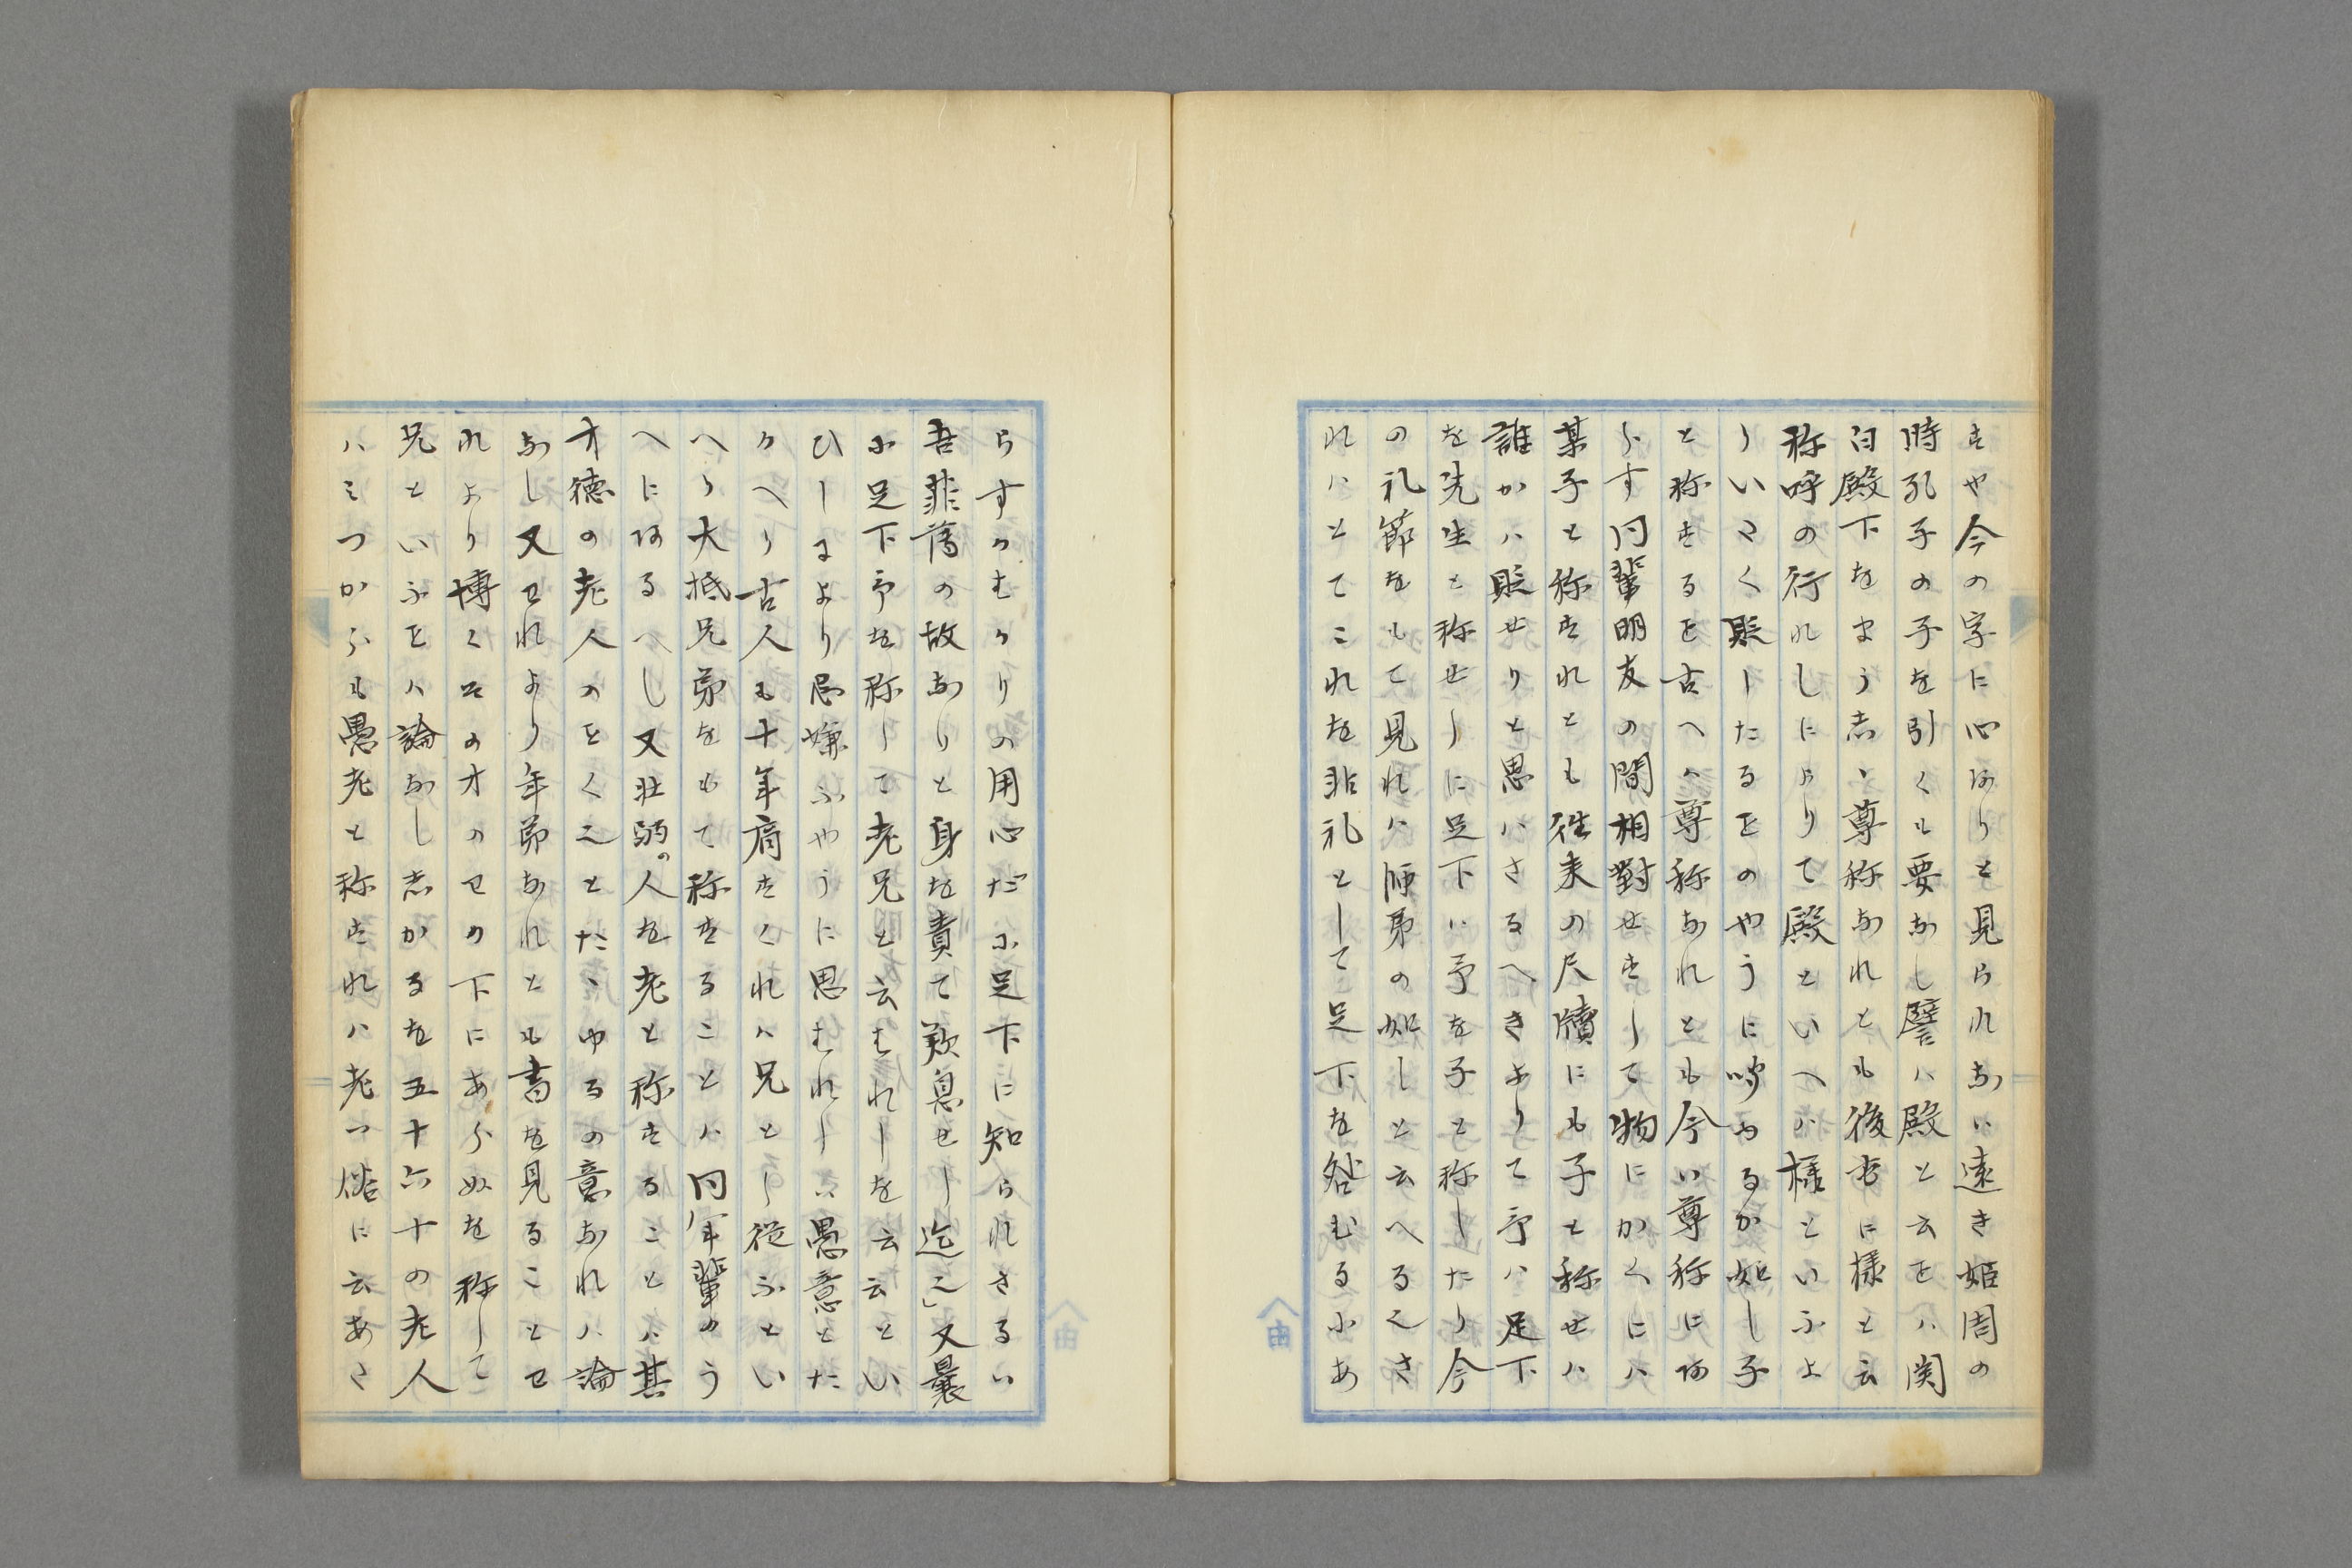 すや今の字に心ありと見られなハ遠き姫周の
時孔子の子を引くも要なし譬ハ殿と云をハ関
白殿下をまうし尊称なれとも後世に様と云
称呼の行れしによりて殿といへハ様といふよ
りいたく貶したるをのやうに聞ゆるか如し子
と称するを古へハ尊称なれとも今ハ尊称にあ
らす同輩朋友の間相對せすして物にかくにハ
某子と称すれとも徃来の尺牘にも子と称せハ
誰かハ貶せりと思ハさるへきよりて予ハ足下
を先生と称せしに足下ハ予を子と称したり今
の礼節をもて見れハ師弟の如しと云へる之さ
れハとてこれを非礼として足下を咎むるにあ
らすかむかりの用心だに足下に知られさるハ
吾菲薄の故なりと身を責て歎息せし迄之又曩
に足下予を称して老兄と云はれしを云云とい
ひしにより忌嫌ふやうに思はれしハ愚意とた
かへり古人も十年肩すくれハ兄とし従ふとい
へり大抵兄弟をもて称することハ同年輩のう
へにあるへし又壮弱の人を老と称することハ其
才徳の老人のをくことたゝゆるの意なれハ論
なし又われより年弟なれとも書を見ることわ
れより博くその才のわか下にあらぬを称して
兄といふをハ論なししかるを五十六十の老人
ハみつからも愚老と称すれハ老つ俗に云あさ